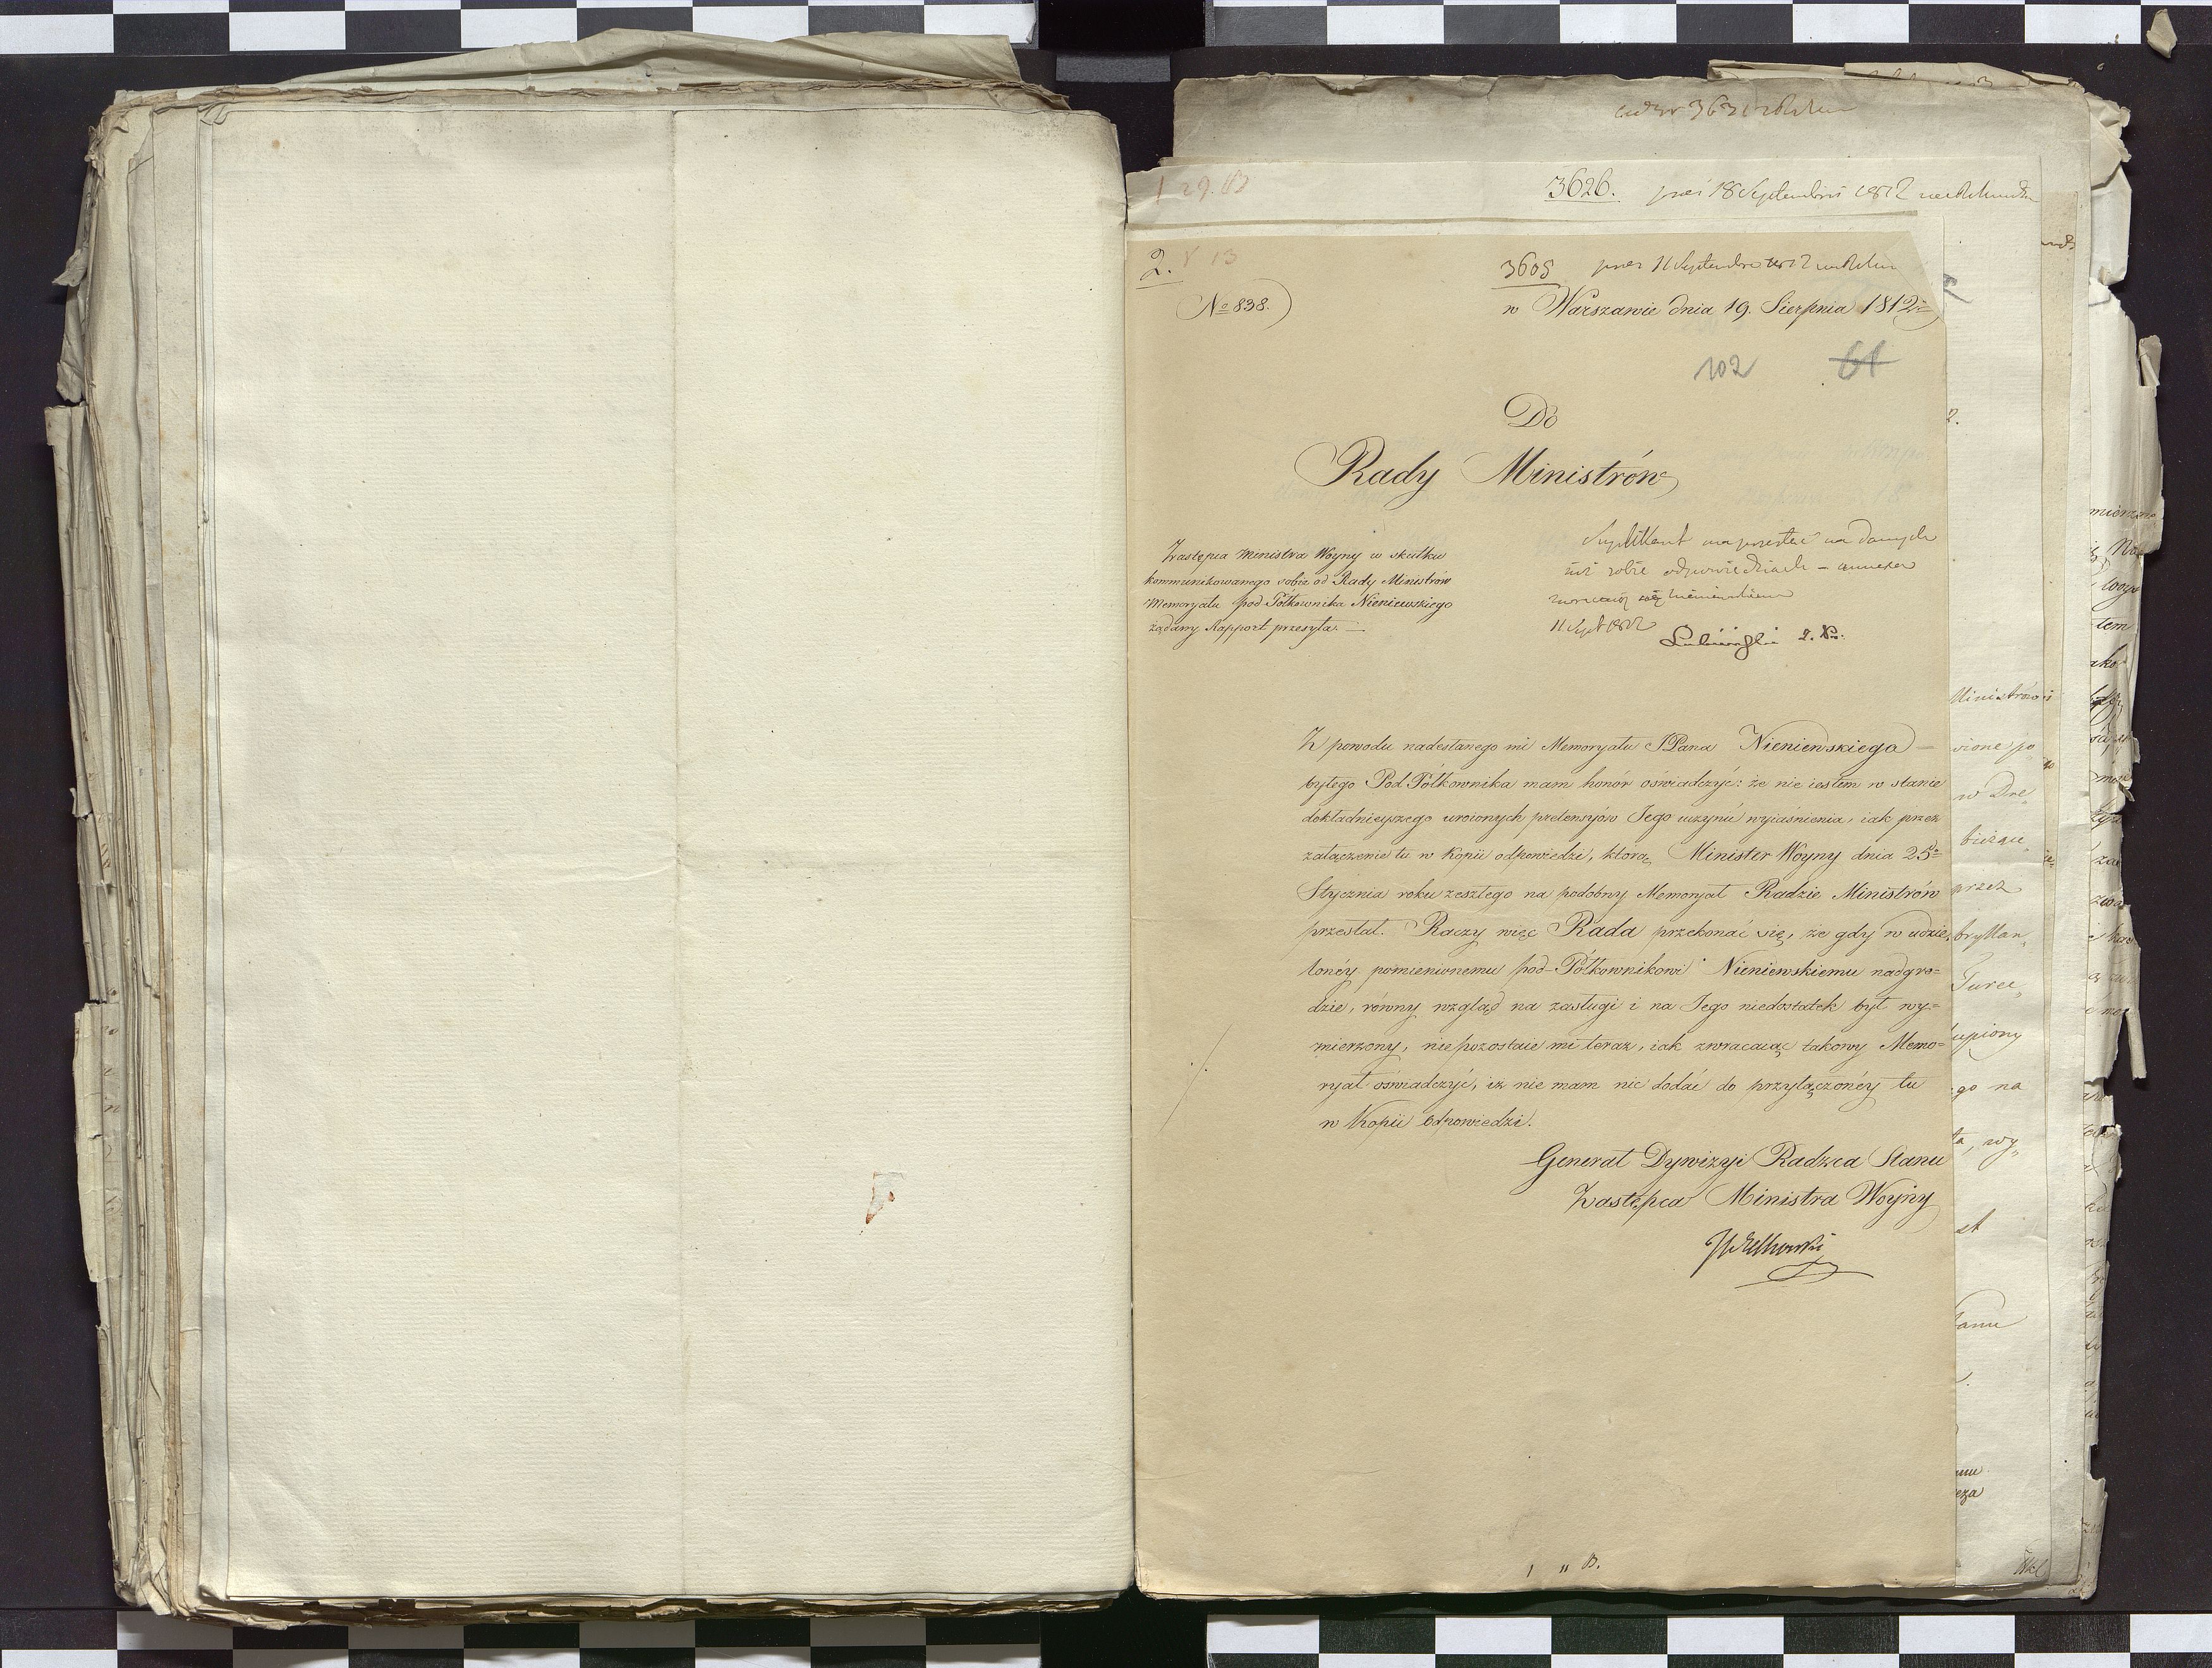 3626. 18 Septembris 1812
2.
3605 11 Septembra 1812
(No 838.)
w Warszawie dnia 19. Sierpnia 1812
102 61
Do
Rady Ministrów
Zastępca Ministra Woyny w skutku
kommunikowanego sobie od Rady Ministrów
Memoryału pod-Półkownika Nieniewskiego
żądany Rapport przesyła. —
Suplikant ma przestać na danych
iuż sobie odpowiedziach – annexa
11 Sept 1812
Lubieński
Z powodu nadesłanego mi Memoryału JPana Nieniewskiego —
byłego Pod-Półkownika mam honór oświadczyć: że nie iestem w stanie
dokładnieyszego uroionych pretensyów Jego uczynić wyiaśnienia, iak przez
załączenie tu w Kopii odpowiedzi, którą Minister Woyny dnia 25=
Stycznia roku zeszłego na podobny Memoryał Radzie Ministrów
przesłał. Raczy więc Rada przekonać się, że gdy w udzie„
lonéy pomienionemu pod-Półkownikowi Nieniewskiemu nadgro=
dzie, równy wzgląd na zasługi i na Jego niedostatek był wy=
mierzony, niepozostaie mi teraz, iak zwracaiąc takowy Memo=
ryał oświadczyć, iż nie mam nic dodać do przyłączonéy tu
w Kopii odpowiedzi.
Generał Dywizyi Radzca Stanu
Zastępca Ministra Woyny
JWielhorski
1 " B.